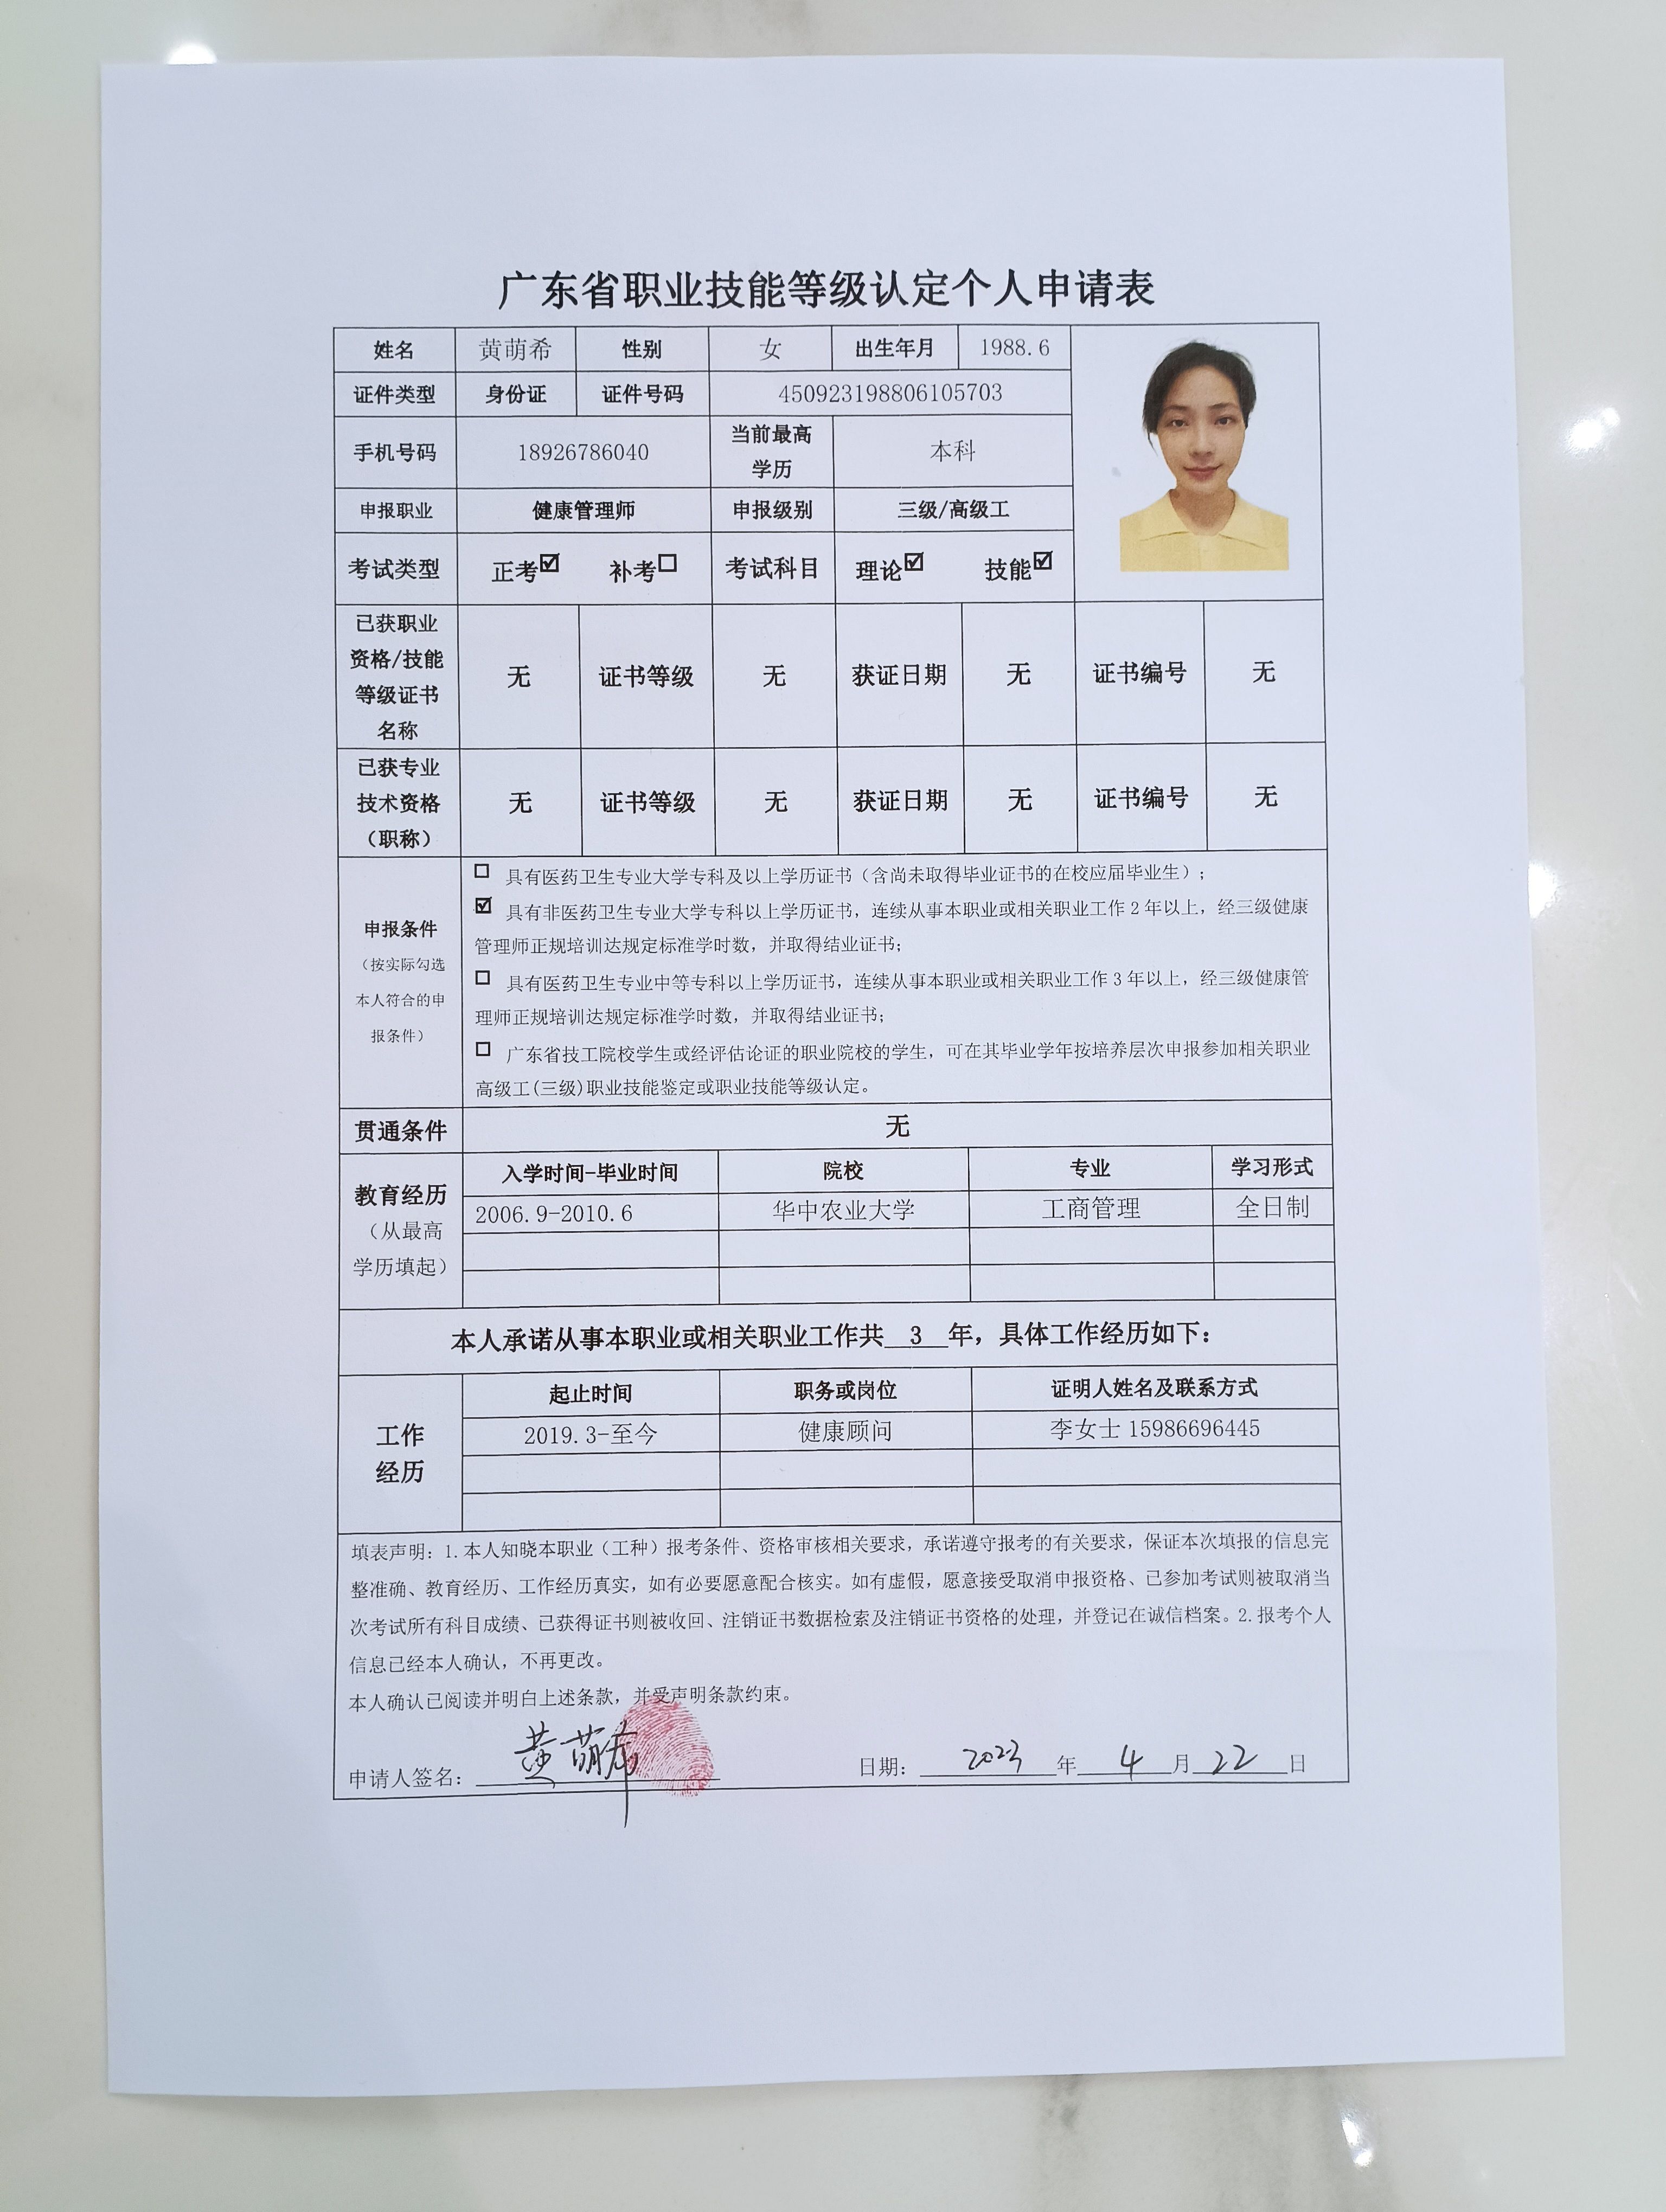 广东省职业技能等级认定个人申请表
姓名 黄萌希 性别 女 出生年月 1988.6
证件类型 身份证 证件号码 450923198806105703
手机号码 18926786040 当前最高学历 本科
申报职业 健康管理师 申报级别 三级/高级工
考试类型 正考☑ 补考☐ 考试科目 理论☑ 技能☑
已获职业
资格/技能
等级证书
名称
无 证书等级 无 获证日期 无 证书编号 无
已获专业
技术资格
（职称）
无 证书等级 无 获证日期 无 证书编号 无
申报条件
（按实际勾选
本人符合的申
报条件）
☐ 具有医药卫生专业大学专科及以上学历证书（含尚未取得毕业证书的在校应届毕业生）；
☑ 具有非医药卫生专业大学专科以上学历证书，连续从事本职业或相关职业工作2年以上，经三级健康
管理师正规培训达规定标准学时数，并取得结业证书；
☐ 具有医药卫生专业中等专科以上学历证书，连续从事本职业或相关职业工作3年以上，经三级健康管
理师正规培训达规定标准学时数，并取得结业证书；
☐ 广东省技工院校学生或经评估论证的职业院校的学生，可在其毕业学年按培养层次申报参加相关职业
高级工(三级)职业技能鉴定或职业技能等级认定。
贯通条件 无
教育经历
（从最高
学历填起）
入学时间-毕业时间 院校 专业 学习形式
2006.9-2010.6 华中农业大学 工商管理 全日制
本人承诺从事本职业或相关职业工作共 3 年，具体工作经历如下：
工作
经历
起止时间 职务或岗位 证明人姓名及联系方式
2019.3-至今 健康顾问 李女士 15986696445
填表声明：1.本人知晓本职业（工种）报考条件、资格审核相关要求，承诺遵守报考的有关要求，保证本次填报的信息完
整准确、教育经历、工作经历真实，如有必要愿意配合核实。如有虚假，愿意接受取消申报资格、已参加考试则被取消当
次考试所有科目成绩、已获得证书则被收回、注销证书数据检索及注销证书资格的处理，并登记在诚信档案。2.报考个人
信息已经本人确认，不再更改。
本人确认已阅读并明白上述条款，并受声明条款约束。
申请人签名： 黄萌希 日期： 2023 年 4 月 22 日